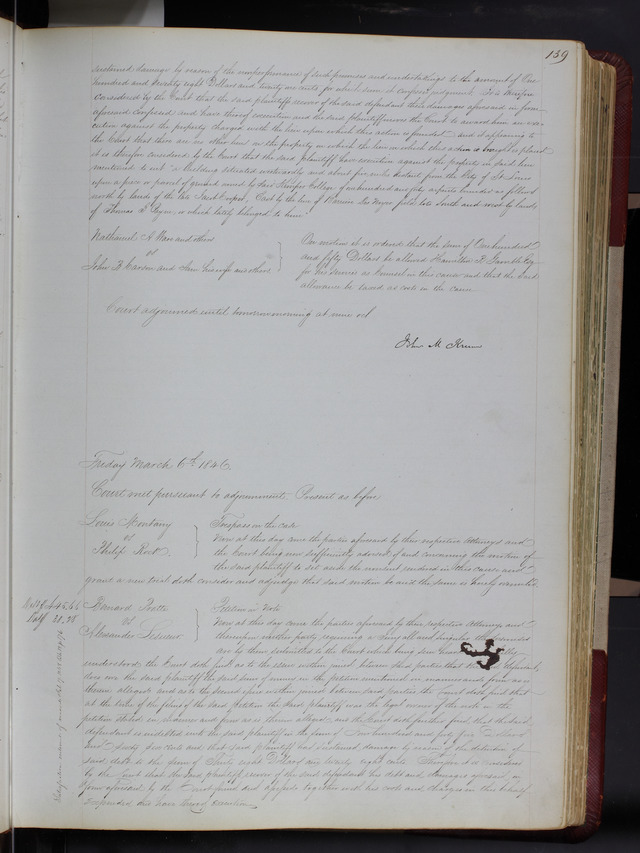 139
sustained damage by reason of the nonperformance of such promises and undertakings to the amount of One
hundred and twenty eight Dollars and twenty six cents for which sum it confesses judgment. It is therefore
Considered by the Court that the said plaintiff recover of the said defendant the damages aforesaid in form
aforesaid confessed and have thereof execution and the said plaintiff moves the Court to award him an exe-
cution against the property charged with the lien upon which this action is founded and it appearing to
the Court that there are no other liens on the property on which the lien on which this action is brought is placed
it is therefore considered by the Court that the said plaintiff have execution against the property in said lien
mentioned to wit a building situated westwardly and about five miles distant from the City of St Louis
upon a piece or parcel of ground owned by said Kemper College of one hundred and fifty arpents bounded as follows
north by lands of the late East by the line of South and west by lands
of Thomas or which lately belonged to him
Nathaniel A Ware and others
vs
John B Carson and his wife and others
On motion it is ordered that the sum of One hundred
and fifty Dollars be allowed Hamilton R Gamble Esq
for his services as Counsel in this cause and that the said
allowance be taxed as costs in the cause
Court adjourned until tomorrow morning at nine ocl
John M Krum
Friday March 6th 1846
Court met pursuant to adjournment. Present as before
Louis Montany
vs
Philip Rock
Trespass on the case
Now at this day came the parties aforesaid by their respective Attorneys and
the Court being now sufficiently advised of and concerning the motion of
the said plaintiff to set aside the nonsuit rendered in this cause and
grant a new trial doth consider and adjudge that said motion be and the same is hereby overruled
Debt
Bernard
vs
Alexander
Petition in Debt
Now at this day came the parties aforesaid by their respective Attorneys and
thereupon neither party requiring a Jury all and singular the premises
are by them submitted to the Court which being seen heard and fully
understood the Court doth find as to the issue within joined between these parties that the defendant
does owe the said plaintiff the said sum of money in the petition mentioned in manner and form as is
therein alleged and as to the second issue within joined between said parties the Court doth find that
at the time of the filing of the said Petition the said plaintiff was the legal owner of the note in the
petition stated in manner and form as is therein alleged and the Court doth further find that the said
defendant is indebted unto the said plaintiff in the sum of One hundred and forty five Dollars
and sixty six cents and that said plaintiff has sustained damage by reason of the detention of
said debt to the sum of Thirty eight Dollars and twenty eight cents Therefore it is considered
by the Court that the said plaintiff recover of the said defendant his debt and damages aforesaid in
form aforesaid by the Court found and assessed together with his costs and charges in this behalf
expended and have thereof Execution